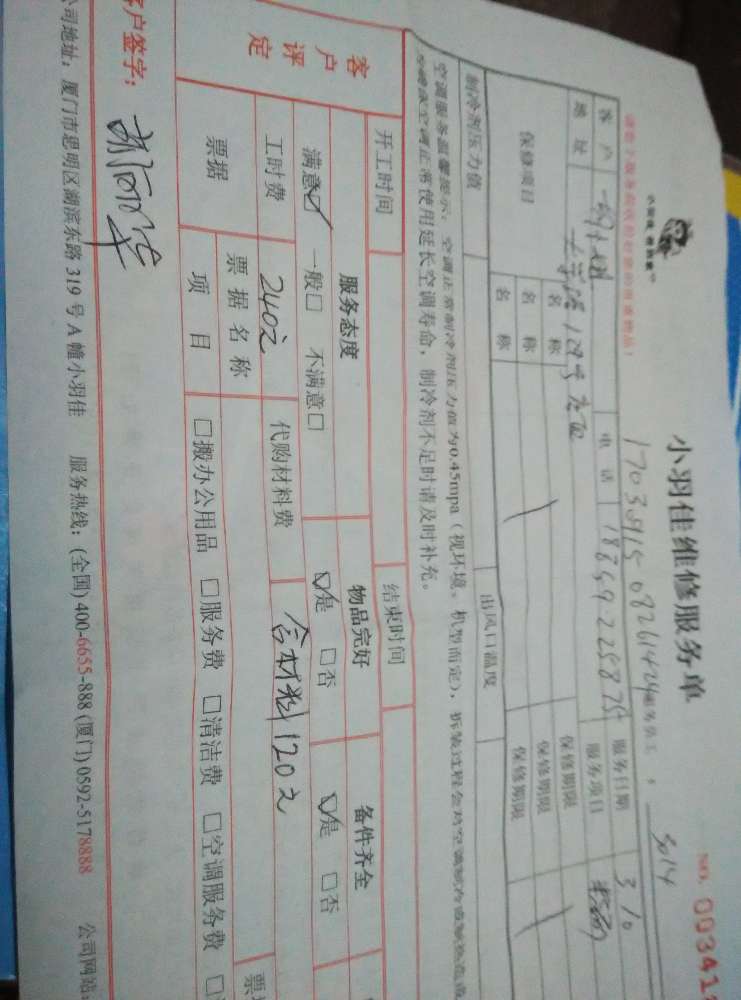 小羽佳维修服务单
NO. 003411
1703091508261424 服务员工: 3014
客户 电话 18859222587 服务日期 3.10
地址 服务项目
保修项目 名称 保修期限
名称 保修期限
名称 保修期限
制冷剂压力值 出风口温度
空调服务温馨提示：空调正常制冷剂压力值为0.45mpa（视环境、机型而定），拆装过程会对空调制冷
空调正常使用延长空调寿命，制冷剂不足时请及时补充。
开工时间 结束时间
客户评定
服务态度 物品完好 备件齐全
满意☑ 一般□ 不满意□ ☑是 □否 ☑是 □否
工时费 240元 代购材料费 含材料120元
票据 票据名称
项目 □搬办公用品 □服务费 □清洁费 □空调服务费 □
客户签字：
公司地址：厦门市思明区湖滨东路319号A幢小羽佳 服务热线：(全国)400-6655-888 (厦门)0592-5178888 公司网站